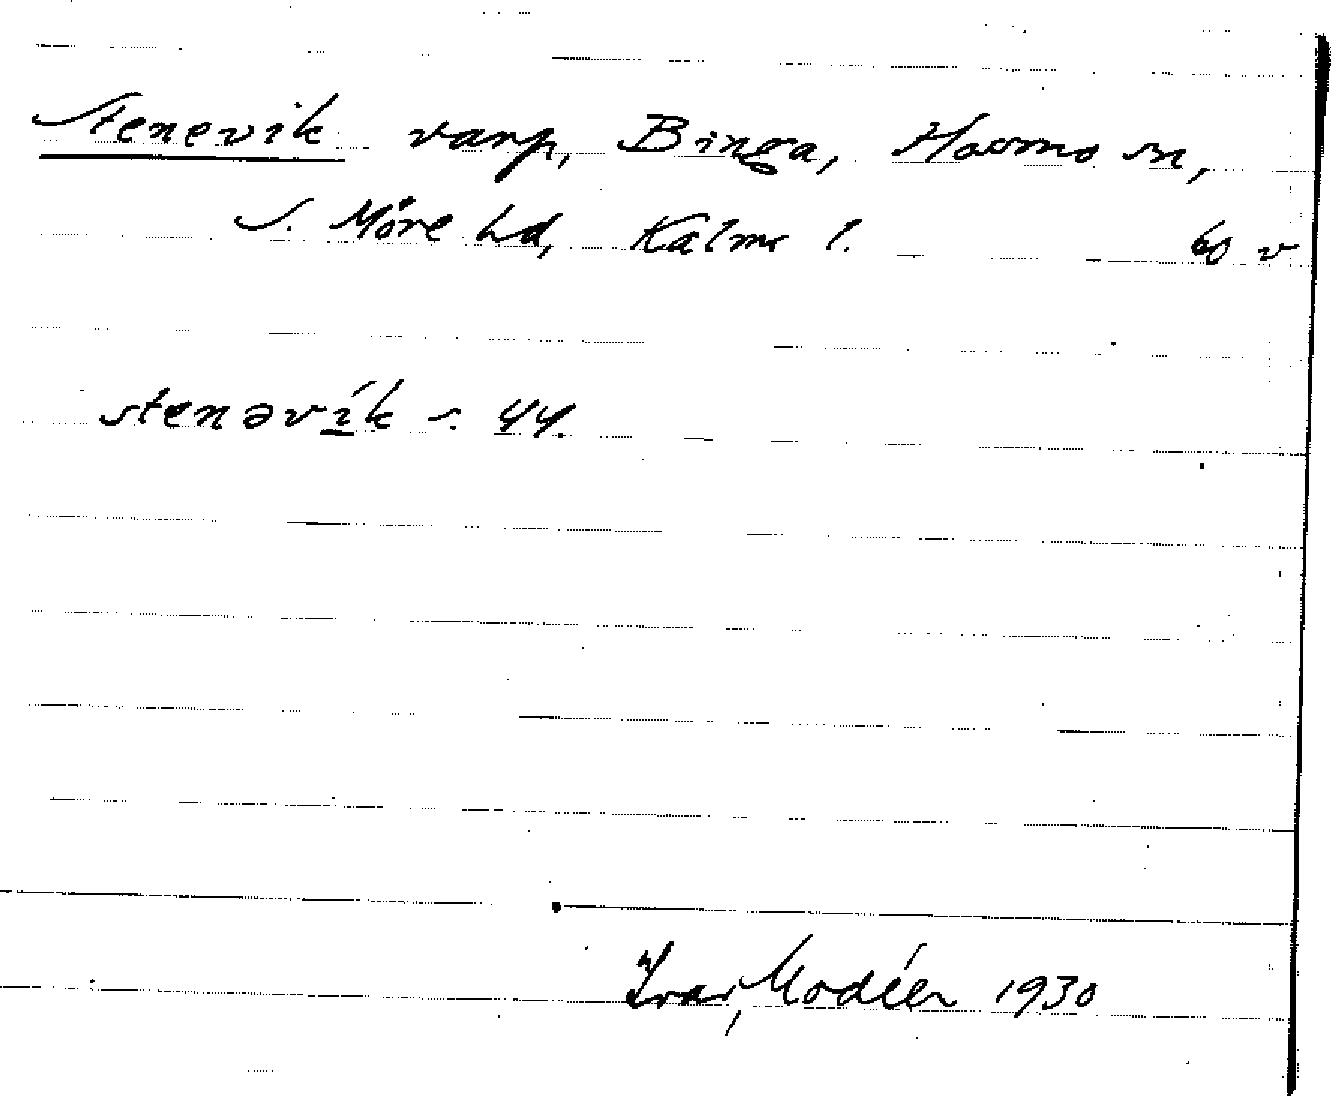 Stenevik varp, Binga, Hossmo sn,
S. Möre hd, Kalmr l. 60 v
stenəvik s. 44.
Ivar Modéer 1930